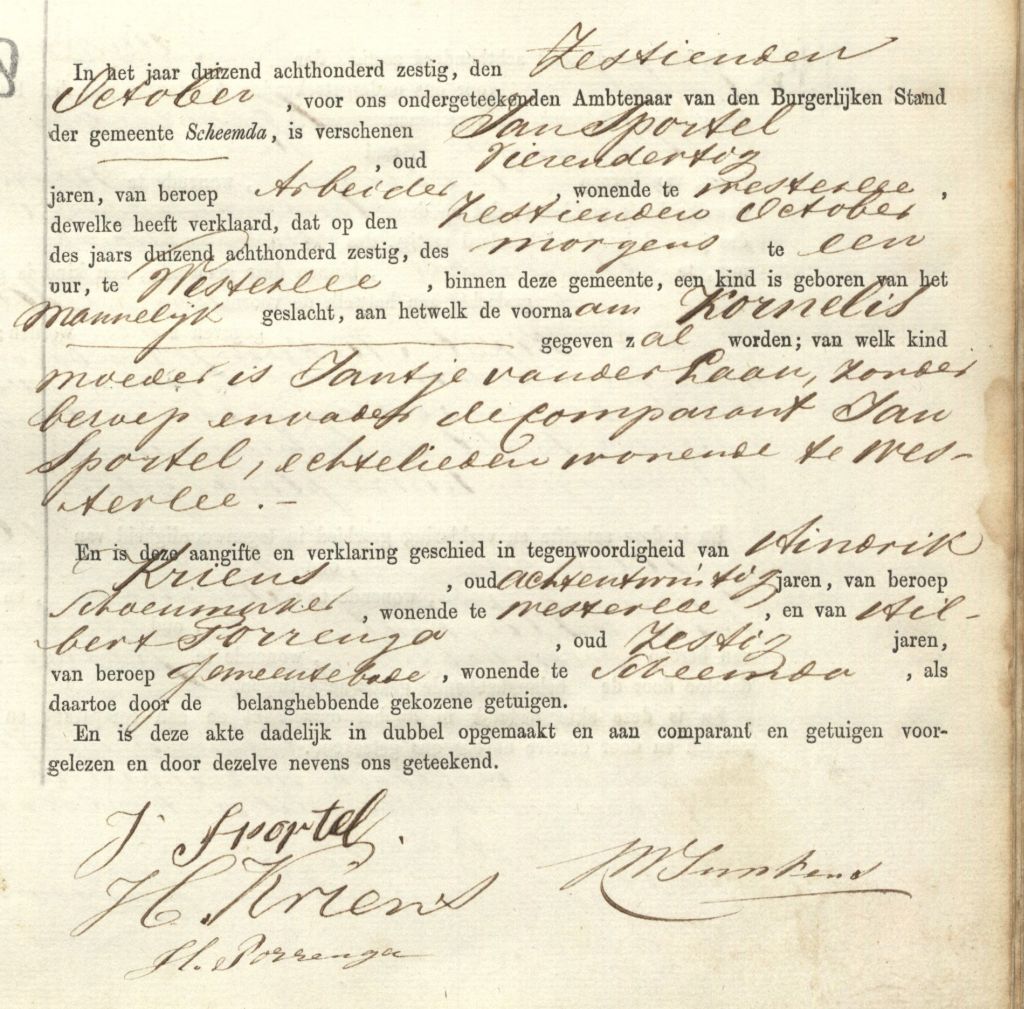 In het jaar duizend achthonderd zestig, den Zestienden
October, voor ons ondergeteekenden Ambtenaar van den Burgerlijken Stand
der gemeente Scheemda, is verschenen Jan Sportel
, oud Vierendertig
jaren, van beroep Arbeider, wonende te Westerlee,
dewelke heeft verklaard, dat op den Zestienden October
des jaars duizend achthonderd zestig, des morgens te een
uur, te Westerlee, binnen deze gemeente, een kind is geboren van het
Mannelijk geslacht, aan hetwelk de voornaam Kornelis
gegeven zal worden; van welk kind
moeder is Jantje van der Laan, zonder
beroep en vader de comparant Jan
Sportel, echtelieden wonende te Wes-
terlee.-
En is deze aangifte en verklaring geschied in tegenwoordigheid van Hindrik
Kriens, oud achtentwintig jaren, van beroep
Schoenmaker, wonende te Westerlee, en van Hil-
bert Porrenga, oud Zestig jaren,
van beroep gemeentebode, wonende te Scheemda, als
daartoe door de belanghebbende gekozene getuigen.
En is deze akte dadelijk in dubbel opgemaakt en aan comparant en getuigen voor-
gelezen en door dezelve nevens ons geteekend.
J Sportel.
H. Kriens
H. Porrenga